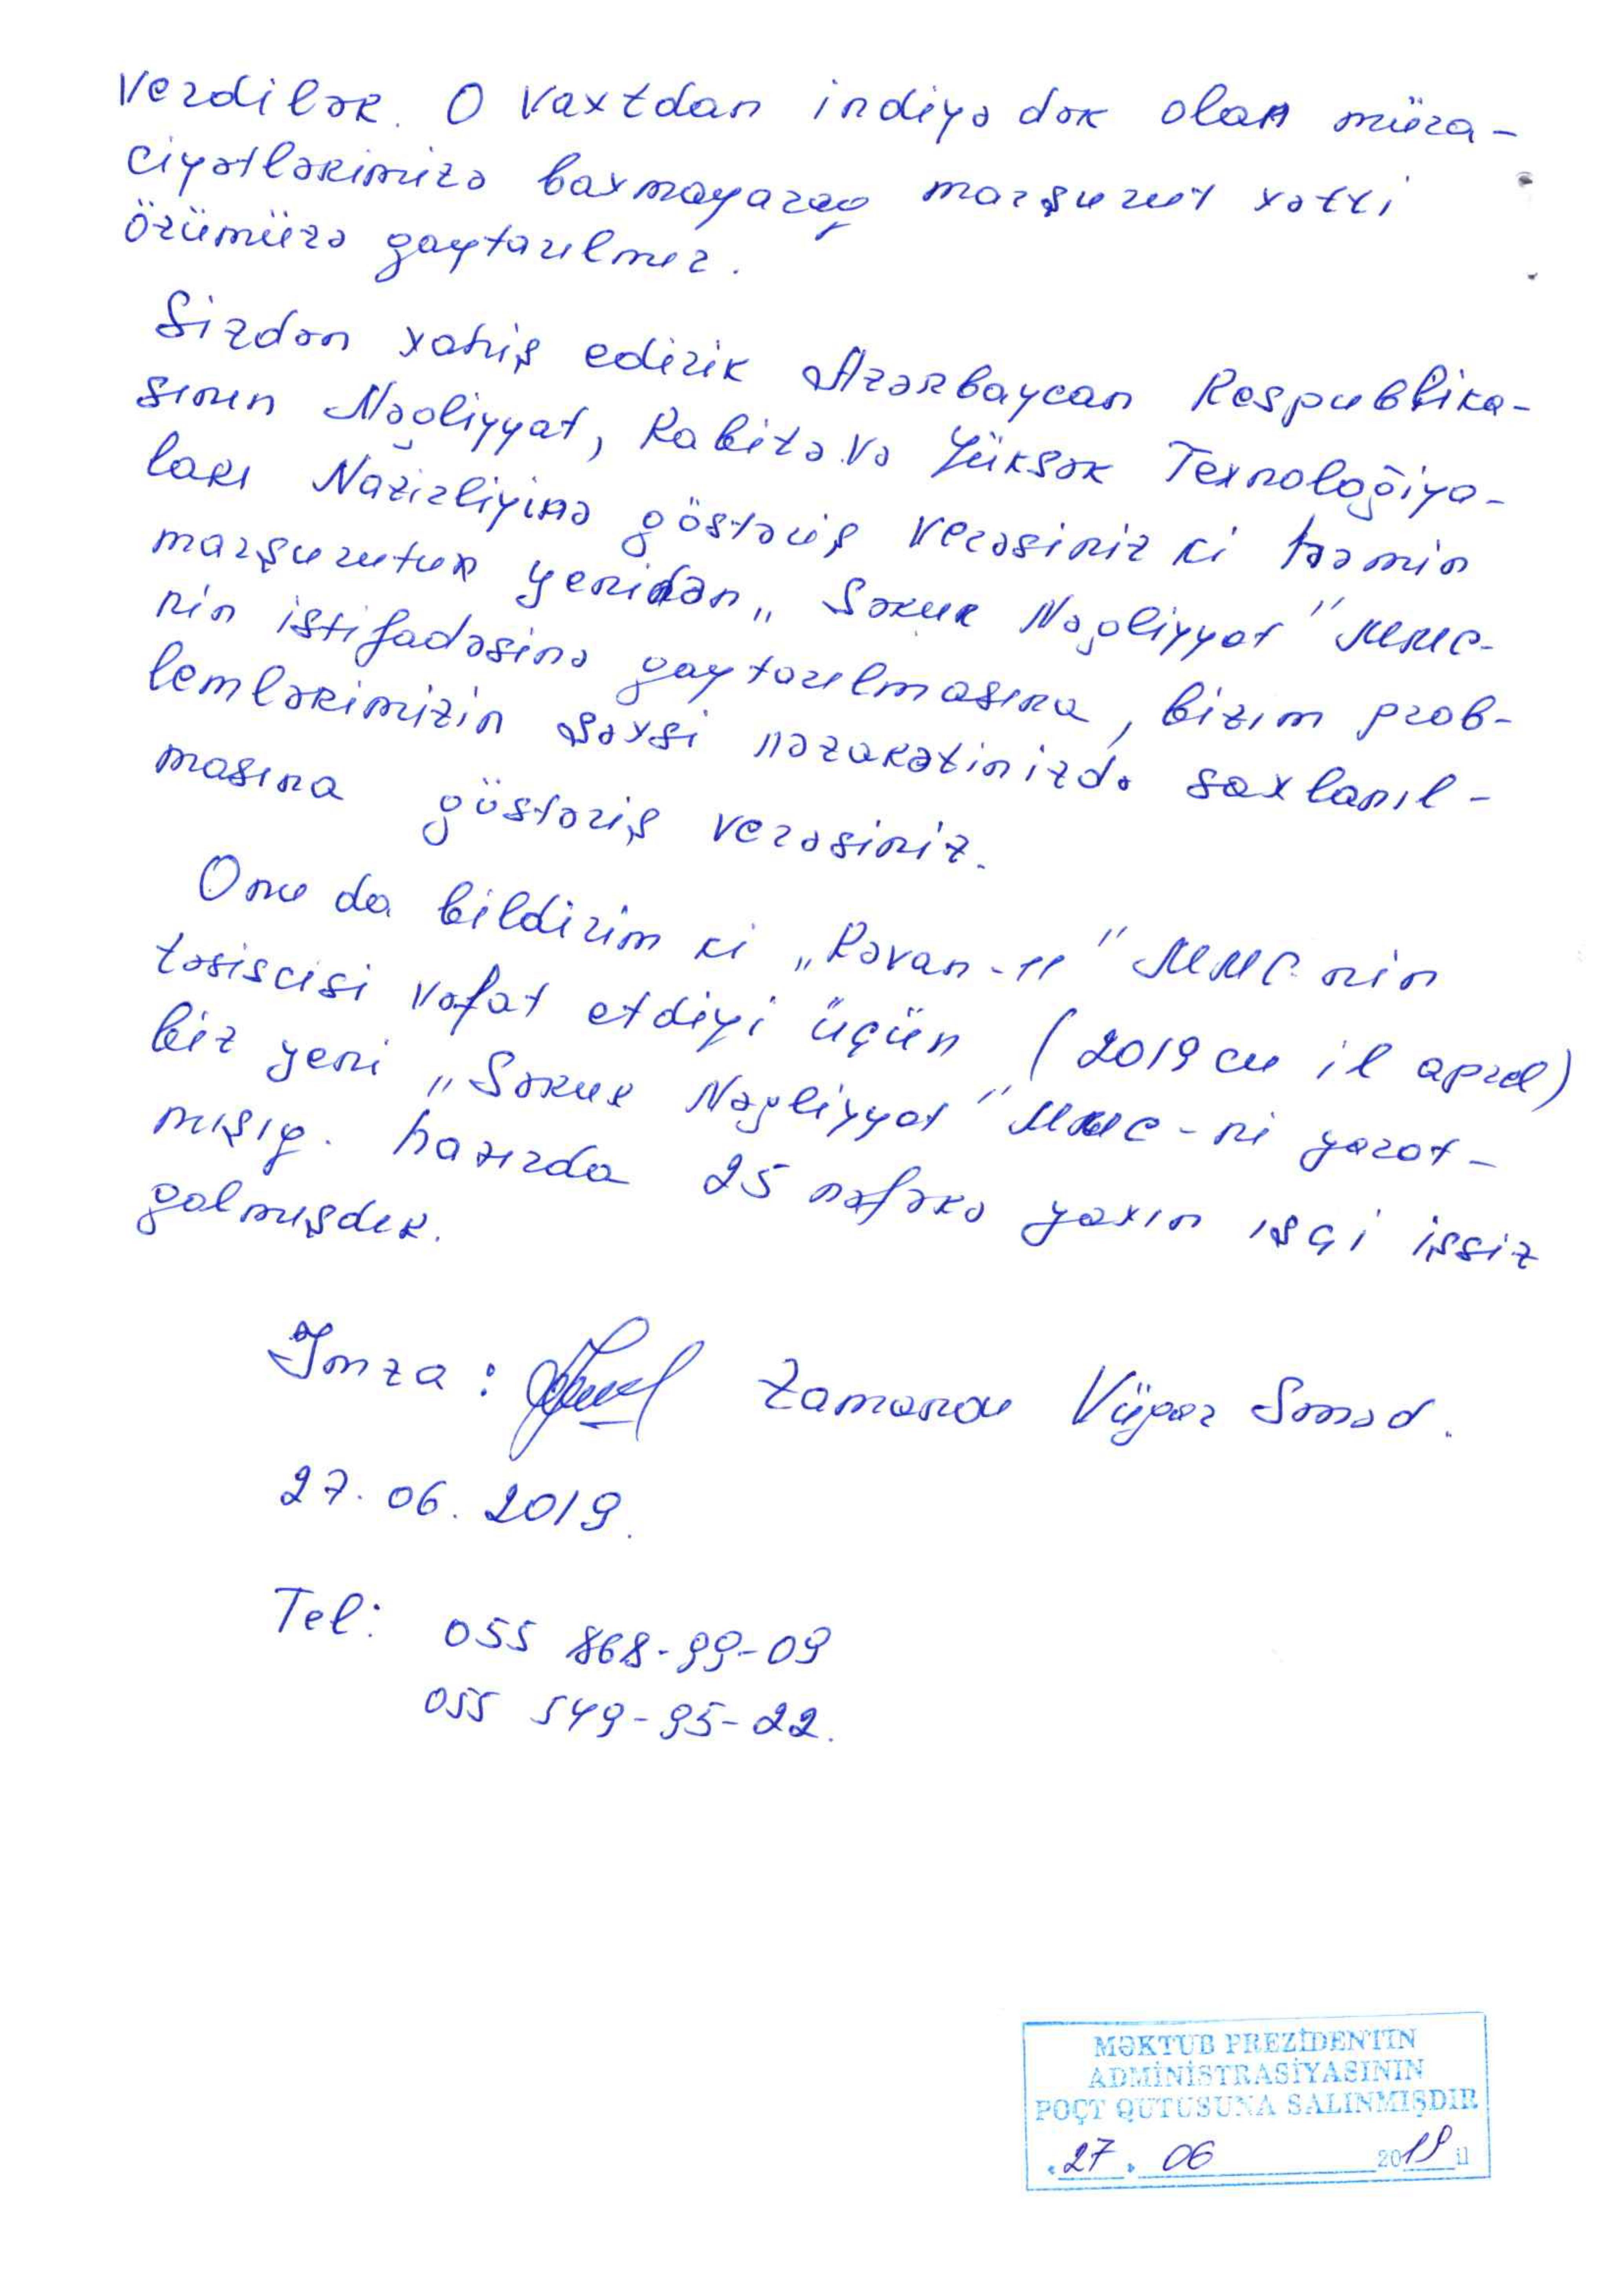 Verdilər. O vaxtdan indiyə dək olan müra-
ciyətlərimizə baxmayaraq marşurut xətti
özümüzə qaytarılmır.
Sizdən xahiş edirik Azərbaycan Respublika-
sının Nəqliyyat, Rabitə və Yüksək Texnoloğiya-
ları Nazirliyinə göstəriş verəsiniz ki həmin
marşurutun yenidən „Sərur Nəqliyyat" MMC-
nin istifadəsinə qaytarılmasına, bizim prob-
lemlərimizin şəxsi nəzarətinizdə saxlanıl-
masına göstəriş verəsiniz.
Onu da bildirim ki „Rəvan-11" MMC nin
təsiscisi vəfat etdiyi üçün (2019 cu il aprel)
biz yeni „Sərur Nəqliyyat" MMC-ni yarat-
mışıq. hazırda 25 nəfərə yaxın işçi işsiz
qalmışdır.
İmza: Zamanov Vüqar Səməd.
27.06.2019.
Tel: 055 868-99-09
055 549-95-22.
MƏKTUB PREZİDENTİN
ADMİNİSTRASİYASININ
POÇT QUTUSUNA SALINMIŞDIR
«27» 06 2019 il